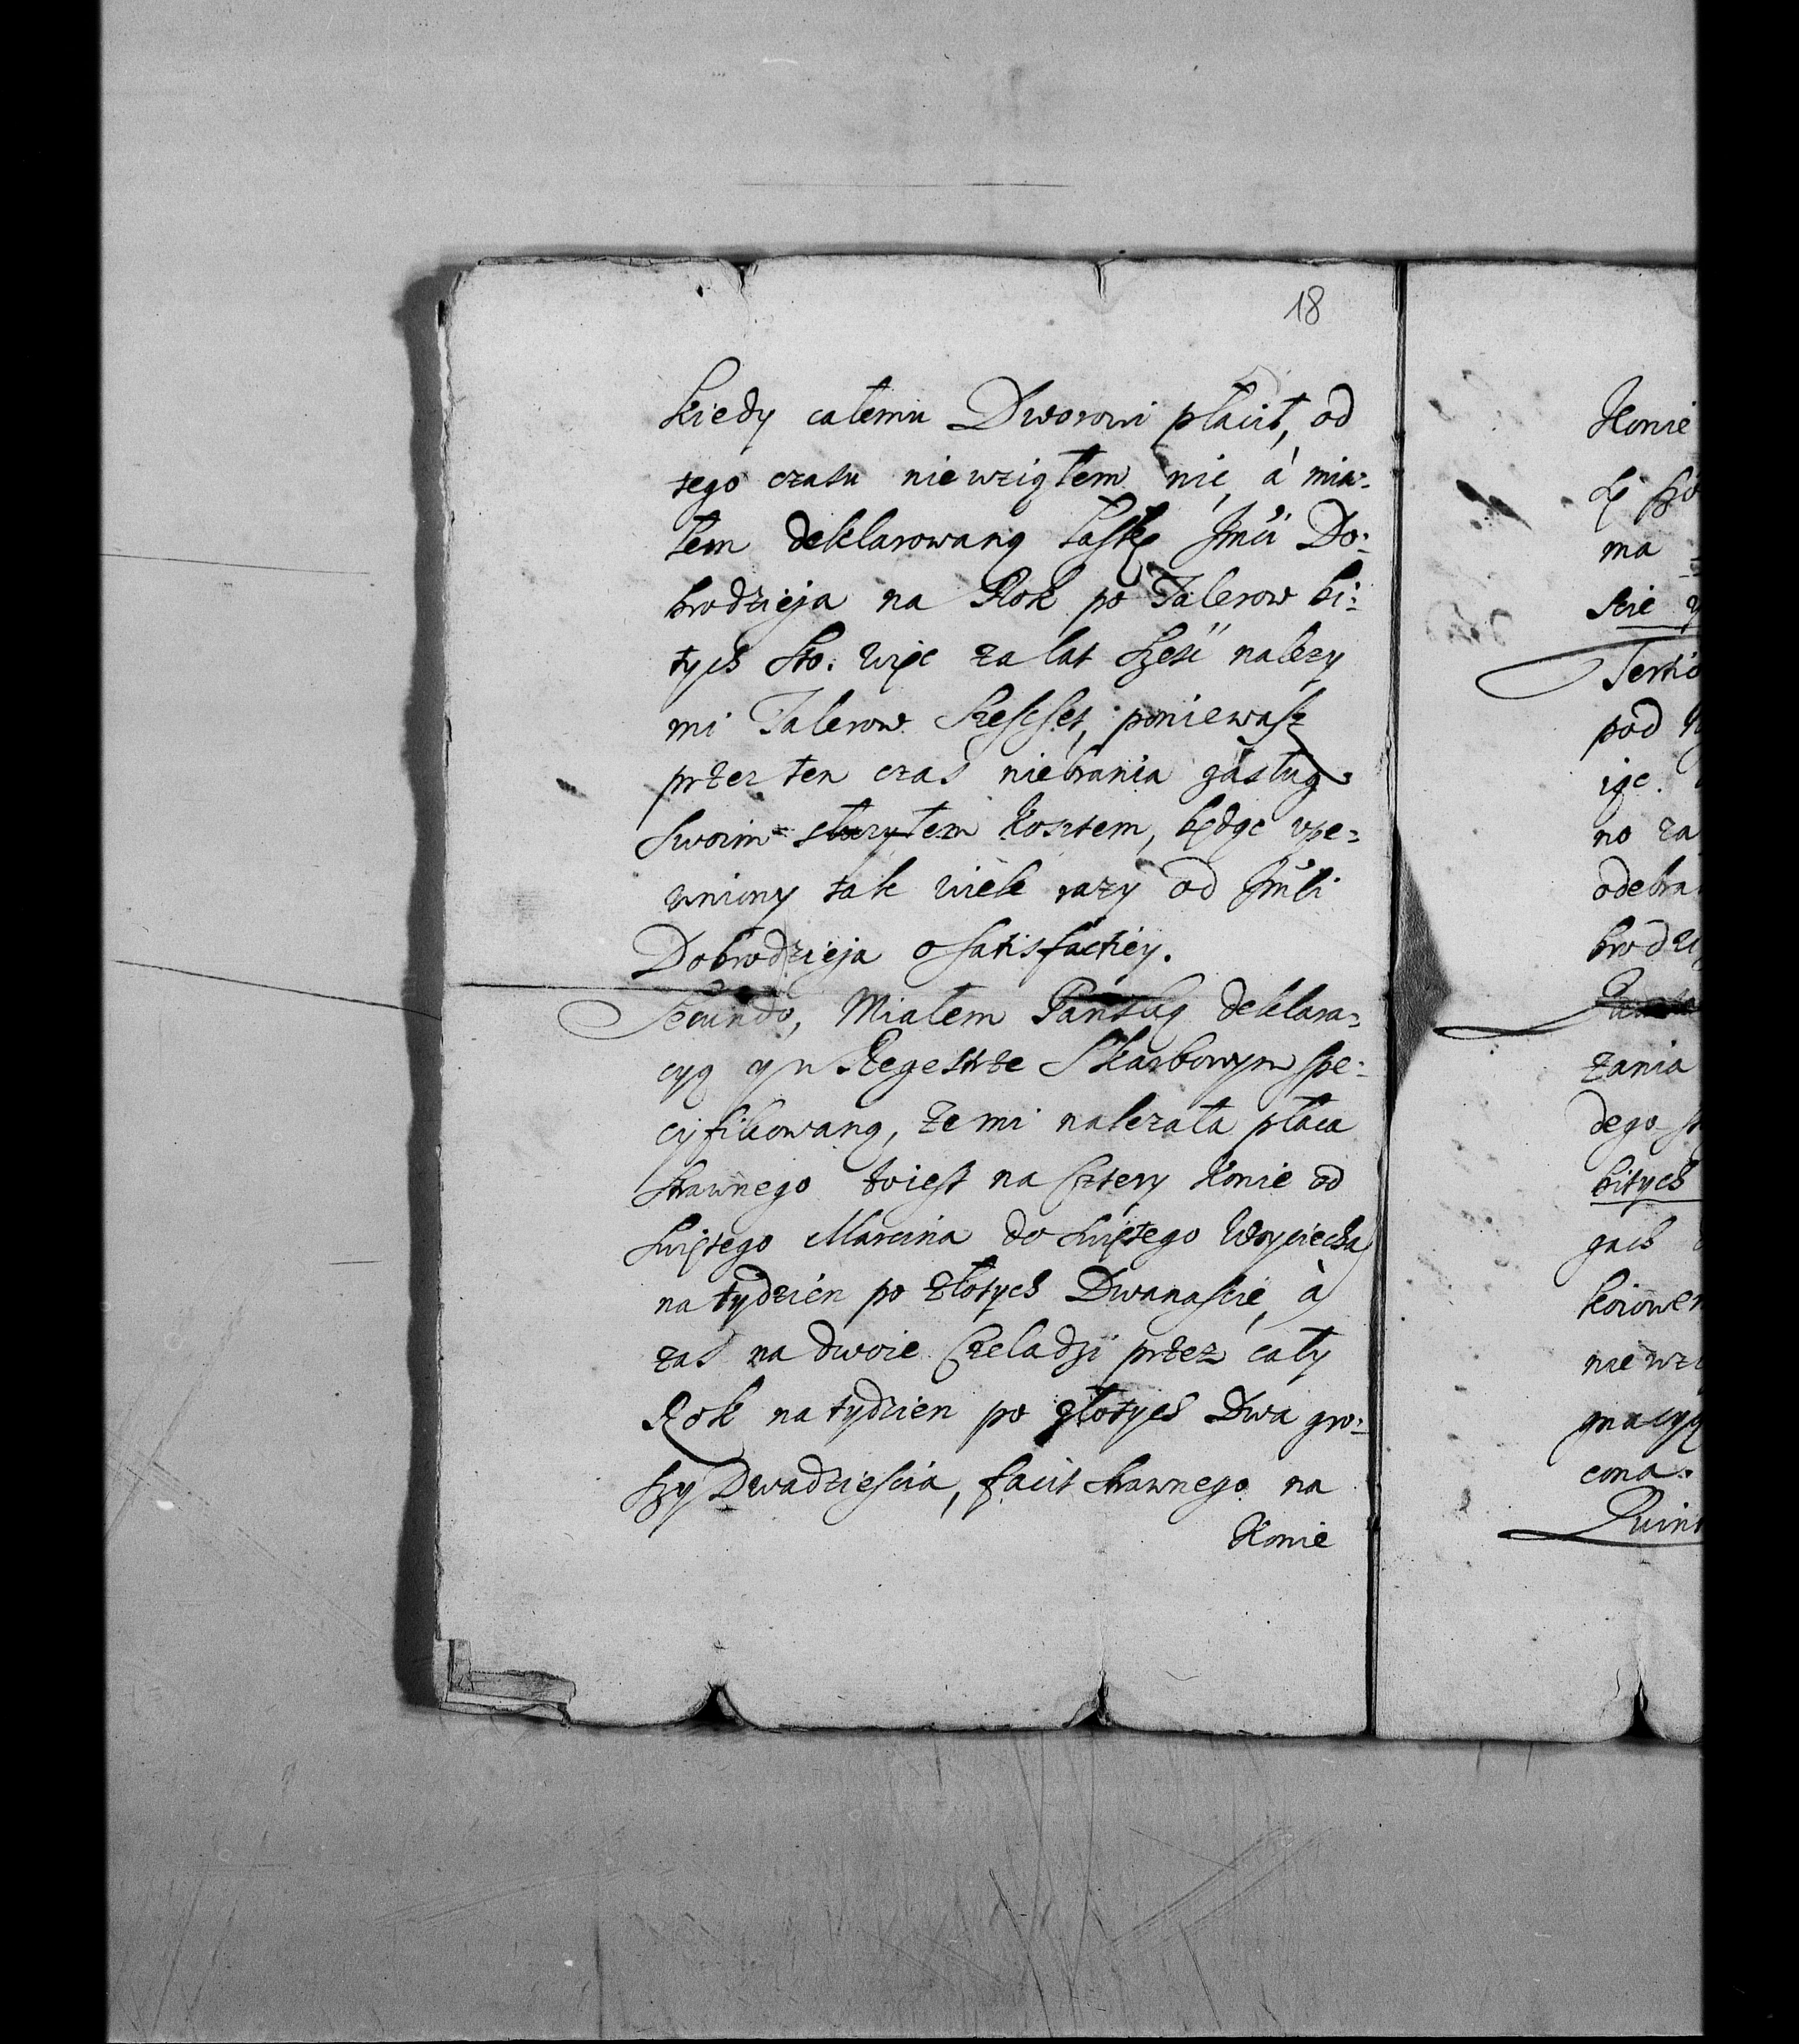 18
kiedy całemu Dworowi płacił, od
tego czasu niewziąłem nic, à mia:
łem deklarowaną łaskę Jmci Do:
brodzieja na Rok po Talerow bi:
tych sto. więc za lat szesć nalezy
mi Talerow szescset, poniewasz
przez ten czas niebrania zasług
swoim słuzyłem kosztem, będąc upe:
wniony tak wiele razy od Jmci
Dobrodzieja o satisfactiey.
Secundo, Miałem Panską deklara:
cyą y w Regestrze Skarbowym spe:
cyfikowaną, że mi nalezała płaca
strawnego toiest na sztery konie od
swiętego Marcina do swiętego Woyciecha
na tydzień po złotych Dwanascie, à
zas na dwoie Czeladzi przez cały
Rok na tydzien po złotych Dwa gro:
szy Dwadziescia, facit strawnego na
Konie
Konie
ma
Tertio
pod
iąc.
no za
odebra
brodzi
zania
dego
bitych
gach
niewzi
macyą
cona.
Quint